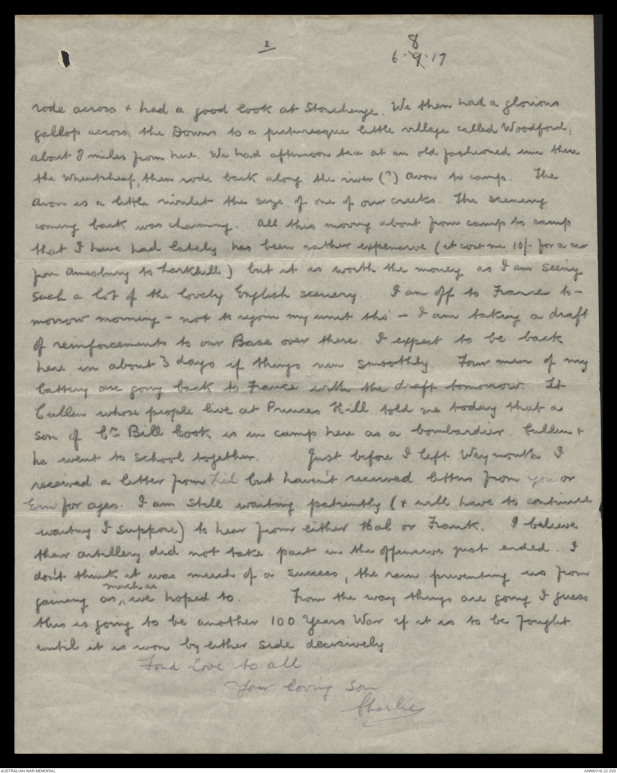 2
8
6.9.17
rode across & had a good look at Stonehenge. We then had a glorious
gallop across the Downs to a picturesque little village called Woodford,
about 8 miles from here. We had afternoon tea at an old fashioned inn there
the Wheatsheaf, then rode back along the river (?) Avon to camp. The
Avon is a little rivulet the size of one of our creeks. The scenery
coming back was charming. All this moving about from camp to camp
that I have had lately has been rather expensive (it cost me 10/- for a car
from Amesbury to Larkhill) but it is worth the money as I am seeing
such a lot of the lovely English scenery I am off to France to-
morrow morning - not to rejoin my unit tho' - I am taking a draft
of reinforcements to our Base over there. I expect to be back
here in about 3 days if things run smoothly. Four men of my
battery are going back to France with the draft tomorrow. Lt
Cullen whose people live at Princes Hill told me today that a
son of Cr Bill Cook is in camp here as a bombardier. Cullen &
he went to school together. Just before I left Weymouth I
received a letter from Lil but haven't received letters from you or
Ern for ages. I am still waiting patiently (& will have to continue
waiting I suppose) to hear from either Hal or Frank. I believe
their artillery did not take part in the offensive just ended. I
don't think it was much of a success, the rain preventing us from
gaining as much as we hoped to. From the way things are going I guess
this is going to be another 100 Years War if it is to be fought
until it is won by either side decisively
Fond love to all
Your loving son
Charlie
AUSTRALIAN WAR MEMORIAL